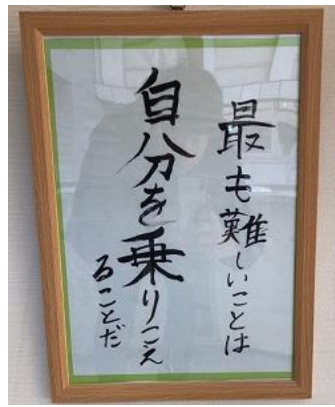 最も難しいことは
自分を乗りこえ
ることだ